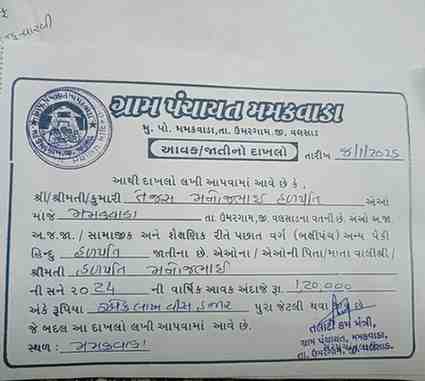 ગ્રામ પંચાયત મમકવાડા
મુ. પો. મમકવાડા,તા. ઉમરગામ,જી. વલસાડ
આવક/જાતીનો દાખલો
તારીખ 8/1/2025
આથી દાખલો લખી આપવામાં આવે છે કે,
શ્રી/શ્રીમતી/કુમારી તેજસ મનોજભાઈ હળપતિ એઓ
મોજે મમકવાડા તા. ઉમરગામ,જી. વલસાડના વતની છે. એઓ અ.જા.
અ.જ.જા. / સામાજીક અને શૈક્ષણિક રીતે પછાત વર્ગ (બક્ષીપંચ) અન્ય પૈકી
હિન્દુ હળપતિ જાતીના છે. એઓના / એઓની પિતા/માતા વાલીશ્રી/
શ્રીમતી હળપતિ મનોજભાઈ
ની સને ૨૦24 ની વાર્ષિક આવક અંદાજે રૂા. 1,20,000
અંકે રૂપિયા એક લાખ વીસ હજાર પુરા જેટલી થવા જાય છે
જે બદલ આ દાખલો લખી આપવામાં આવે છે.
સ્થળ : મમકવાડા
તલાટી કમ મંત્રી,
ગ્રામ પંચાયત, મમકવાડા,
તા. ઉમરગામ, જી. વલસાડ.